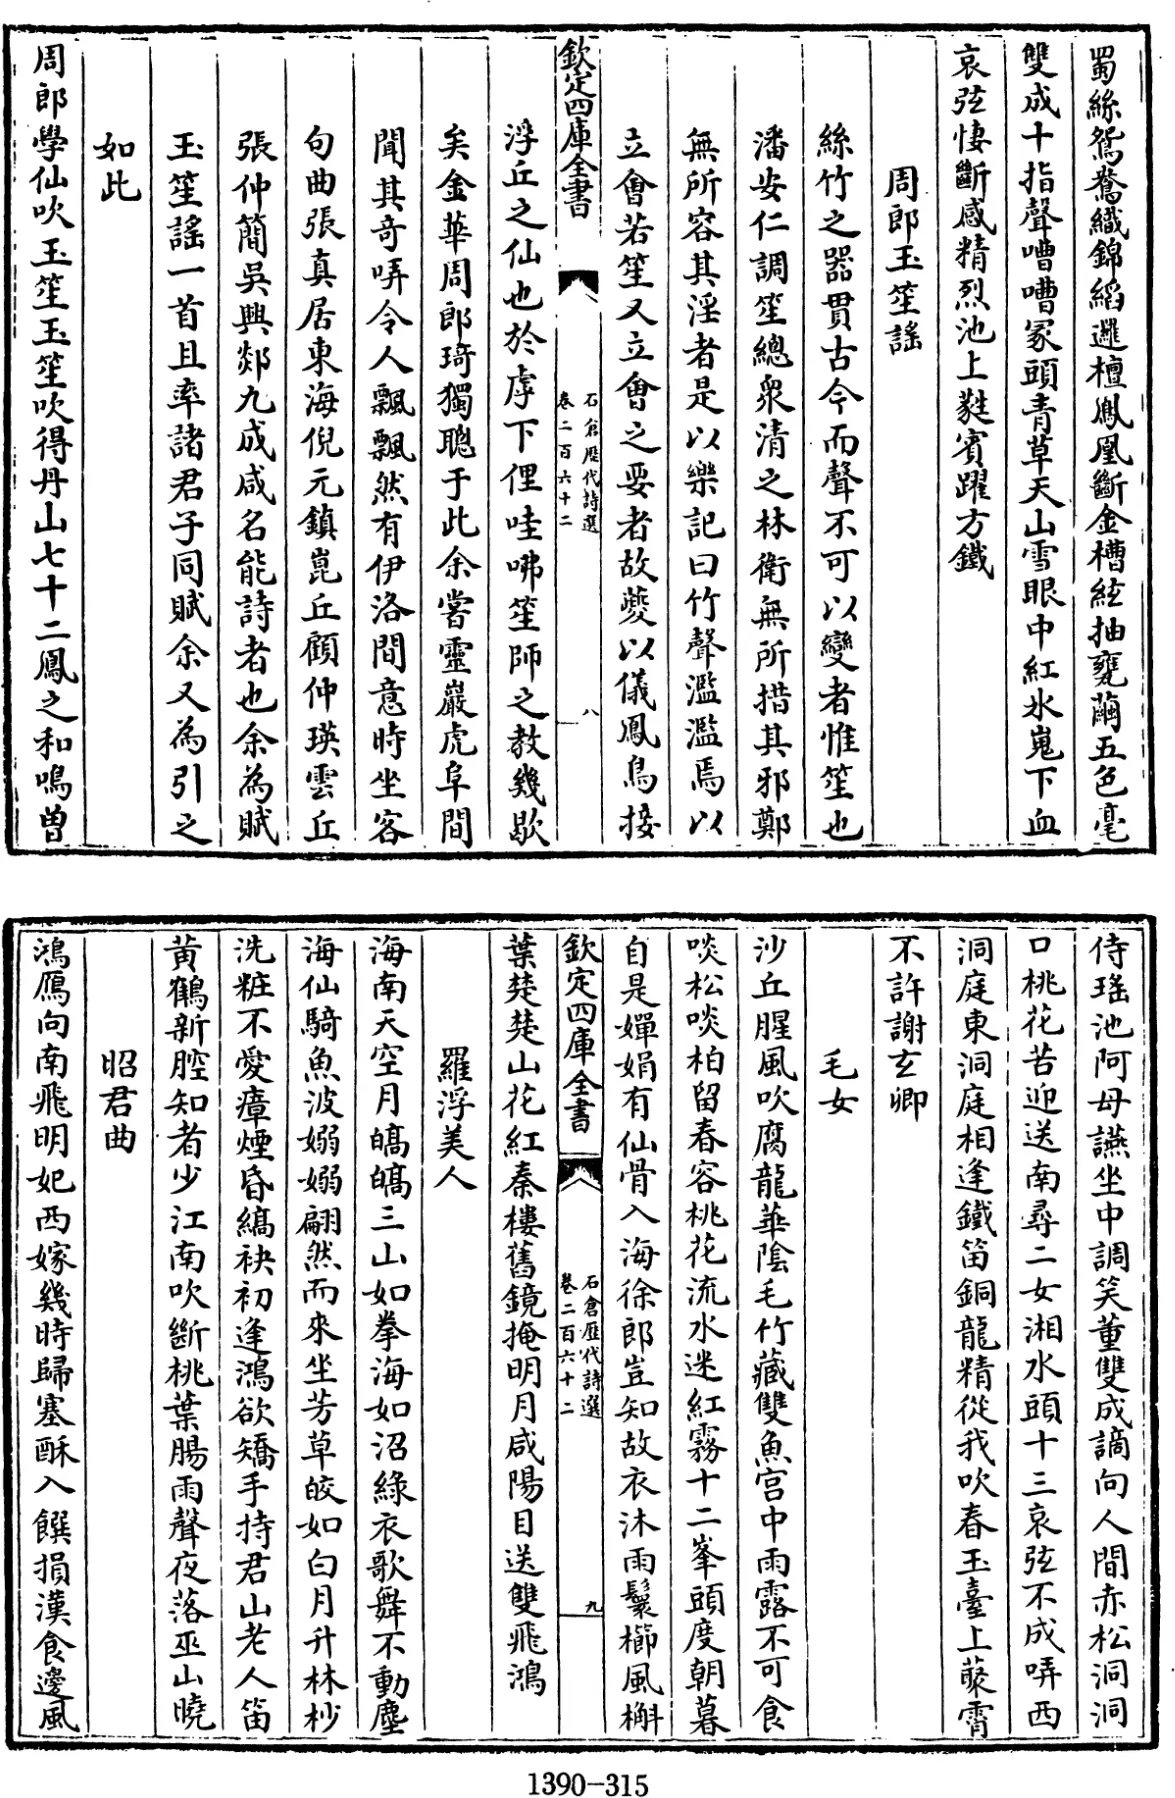 蜀絲鴛鴦織錦縚邏檀鳳凰斷金槽絃抽甕繭五色毫
雙成十指聲嘈嘈冢頭青草天山雪眼中紅氷嵬下血
哀弦悽斷感精烈池上蕤賓躍方鐵
周郎玉笙謠
絲竹之器貫古今而聲不可以變者惟笙也
潘安仁調笙總衆清之林衛無所措其邪鄭
無所容其淫者是以樂記曰竹聲濫濫焉以
立會若笙又立會之要者故夔以儀鳳鳥接
欽定四庫全書
石倉歷代詩選
卷二百六十二
八
浮丘之仙也於虖下俚哇咈笙師之教幾歇
矣金華周郎琦獨聰于此余嘗靈巖虎阜間
聞其奇哢令人飄飄然有伊洛間意時坐客
句曲張真居東海倪元鎮崑丘顧仲瑛雲丘
張仲簡吳興郯九成咸名能詩者也余為賦
玉笙謠一首且率諸君子同賦余又為引之
如此
周郎學仙吹玉笙玉笙吹得丹山七十二鳳之和鳴曽
侍瑤池阿母讌坐中調笑董雙成謫向人間赤松洞洞
口桃花苦迎送南尋二女湘水頭十三哀弦不成哢西
洞庭東洞庭相逢鐵笛銅龍精從我吹春玉臺上蕿霄
不許謝玄卿
毛女
沙丘腥風吹腐龍華陰毛竹藏雙魚宫中雨露不可食
啖松啖柏留春容桃花流水迷紅霧十二峯頭度朝暮
自是嬋娟有仙骨入海徐郎豈知故衣沐雨鬟櫛風槲
欽定四庫全書
石倉歷代詩選
卷二百六十二
九
葉楚楚山花紅秦樓舊鏡掩明月咸陽目送雙飛鴻
羅浮美人
海南天空月皜皜三山如拳海如沼綠衣歌舞不動塵
海仙騎魚波嫋嫋翩然而來坐芳草皎如白月升林杪
洗粧不愛瘴煙昏縞袂初逢鴻欲矯手持君山老人笛
黄鶴新腔知者少江南吹斷桃葉腸雨聲夜落巫山曉
昭君曲
鴻鴈向南飛明妃西嫁幾時歸塞酥入饌損漢食邊風
1390-315